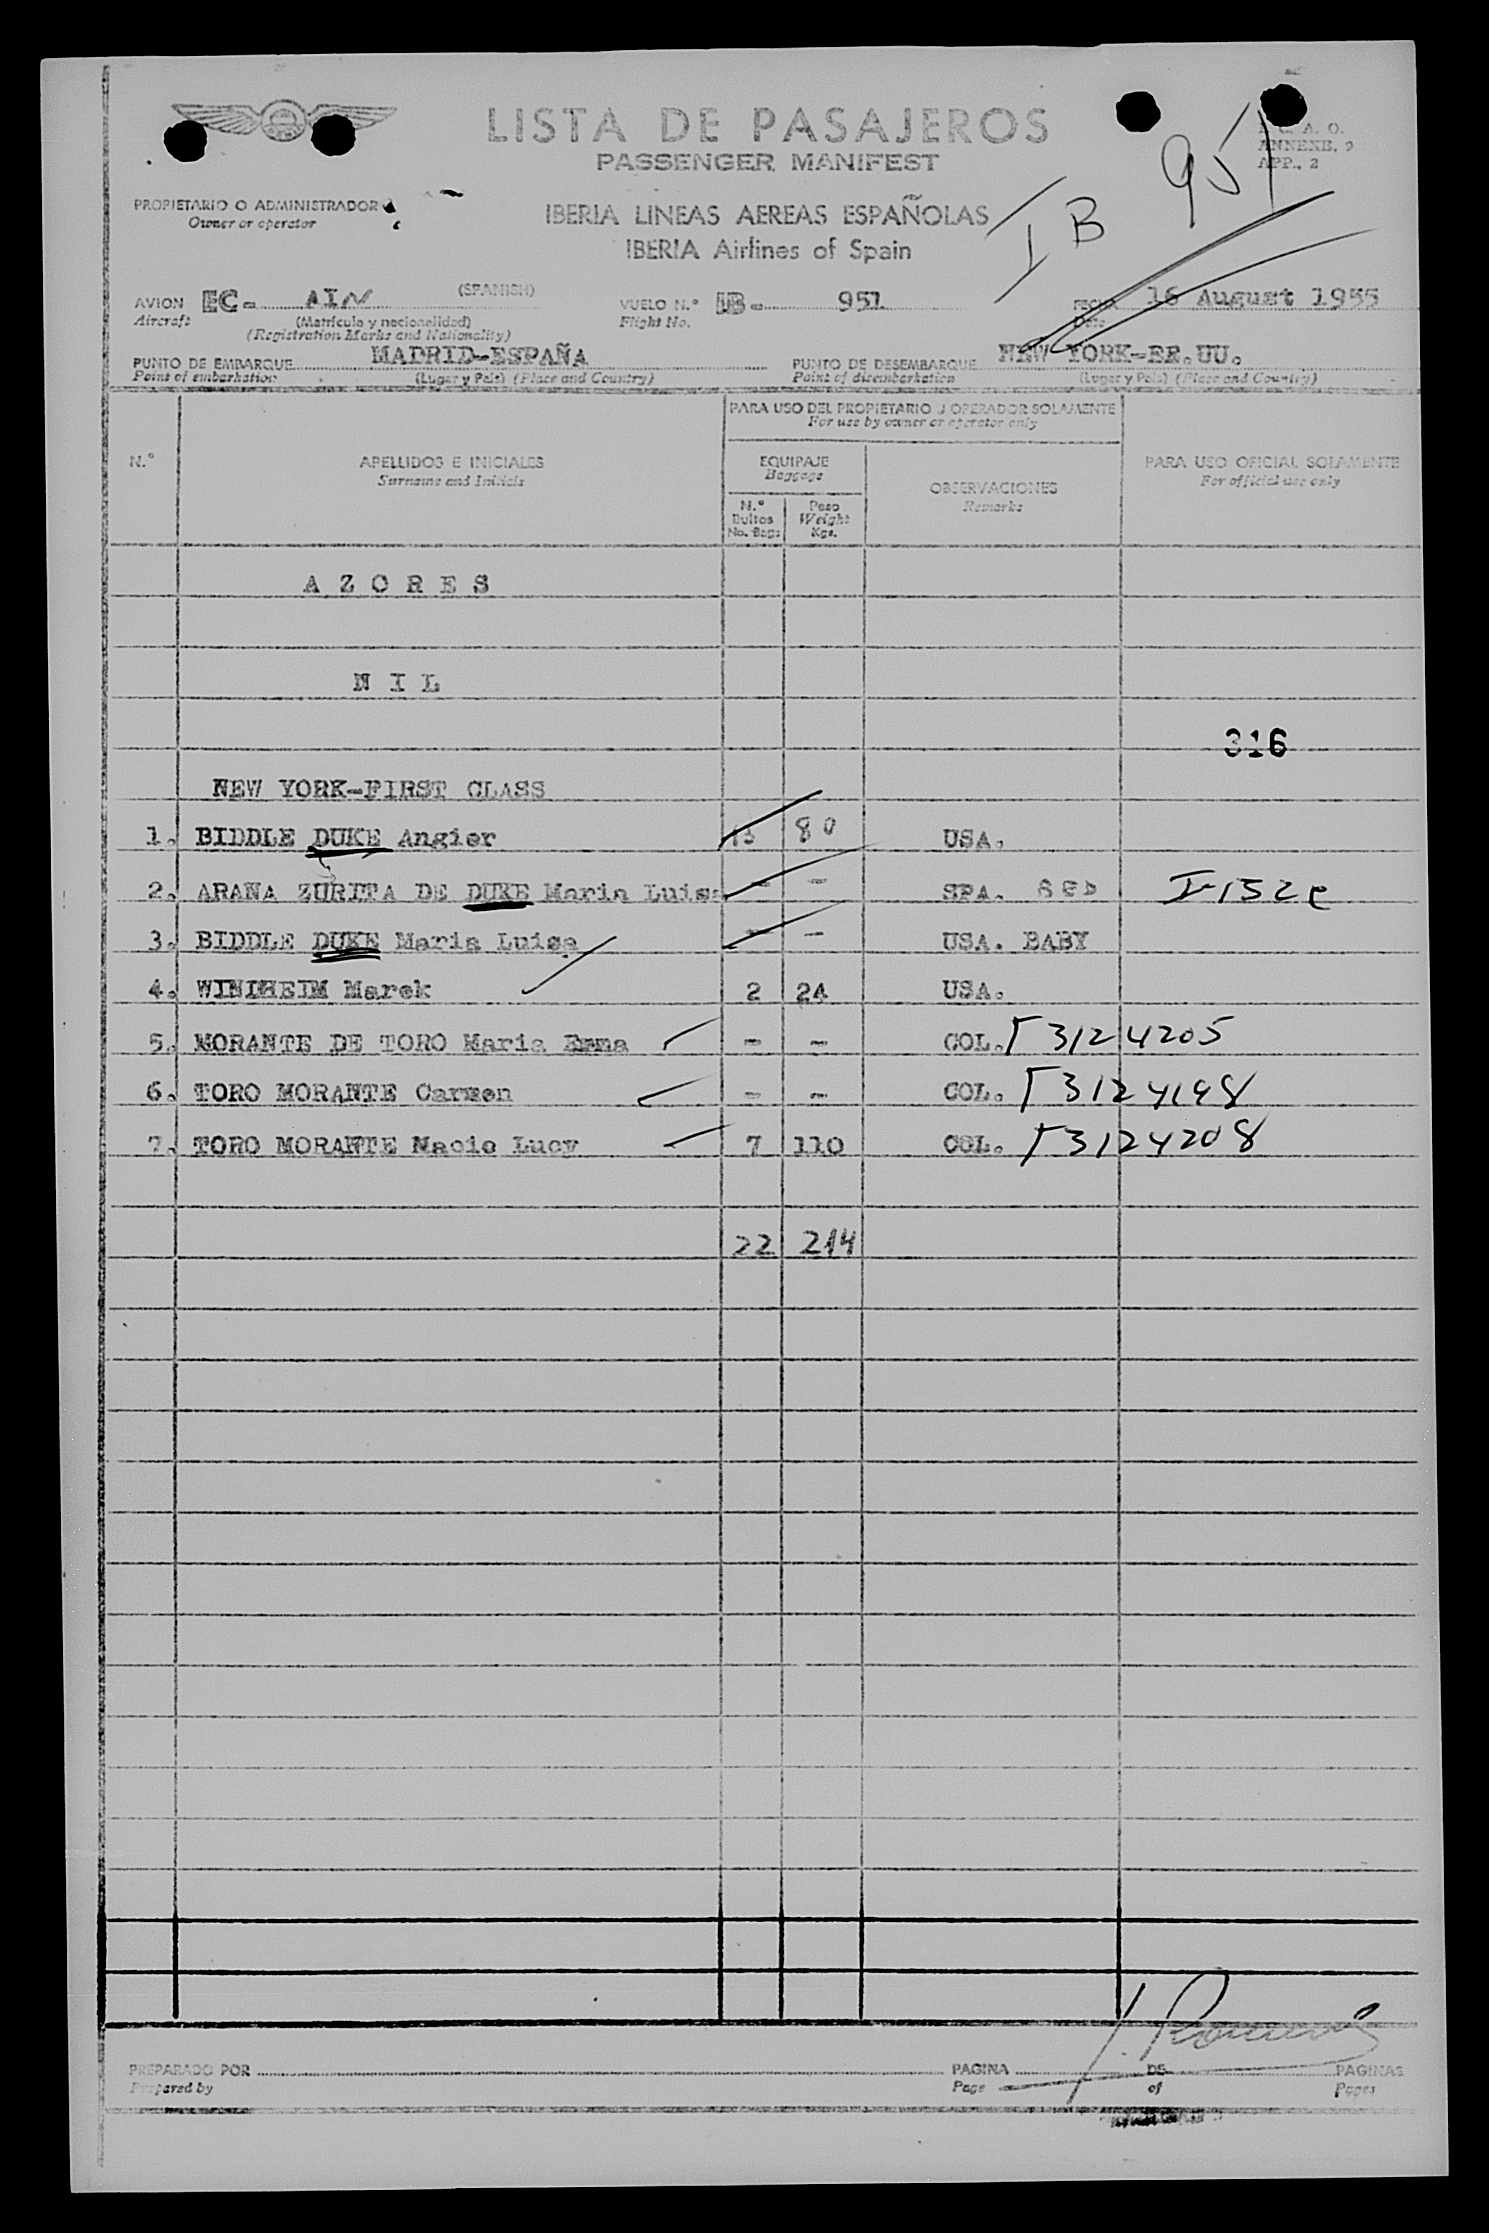 LISTA DE PASAJEROS
PASSENGER MANIFEST
I. C. A. O.
ANNEXE, 9
APP., 2
IB 951
PROPIETARIO O ADMINISTRADOR
Owner or operator
IBERIA LINEAS AEREAS ESPAÑOLAS
IBERIA Airlines of Spain
AVION EC- AIN (SPANISH) VUELO N.° IB- 951 FECHA 16 August 1955
Aircraft (Matrícula y nacionalidad) Flight No. Date
(Registration Marks and Nationality)
PUNTO DE EMBARQUE MADRID-ESPAÑA PUNTO DE DESEMBARQUE NEW YORK-EE.UU.
Point of embarkation (Lugar y País) (Place and Country) Point of disembarkation (Lugar y País) (Place and Country)
PARA USO DEL PROPIETARIO U OPERADOR SOLAMENTE
For use by owner or operator only
N.° APELLIDOS E INICIALES EQUIPAJE OBSERVACIONES PARA USO OFICIAL SOLAMENTE
Surname and Initials Baggage Remarks For official use only
N.° Bultos No. Bags Peso Weight Kgs.
AZORES
NIL
316
NEW YORK-FIRST CLASS
1. BIDDLE DUKE Angier 13 80 USA.
2. ARANA ZURITA DE DUKE Maria Luisa - - SPA. I-152c
3. BIDDLE DUKE Maria Luisa - - USA. BABY
4. WINDHEIM Marek 2 24 USA.
5. MORANTE DE TORO Maria Emma - - COL. T3124205
6. TORO MORANTE Carmen - - COL. T3124198
7. TORO MORANTE Lucy 7 110 COL. T3124208
22 214
PREPARADO POR PAGINA DE PAGINAS
Prepared by Page of Pages